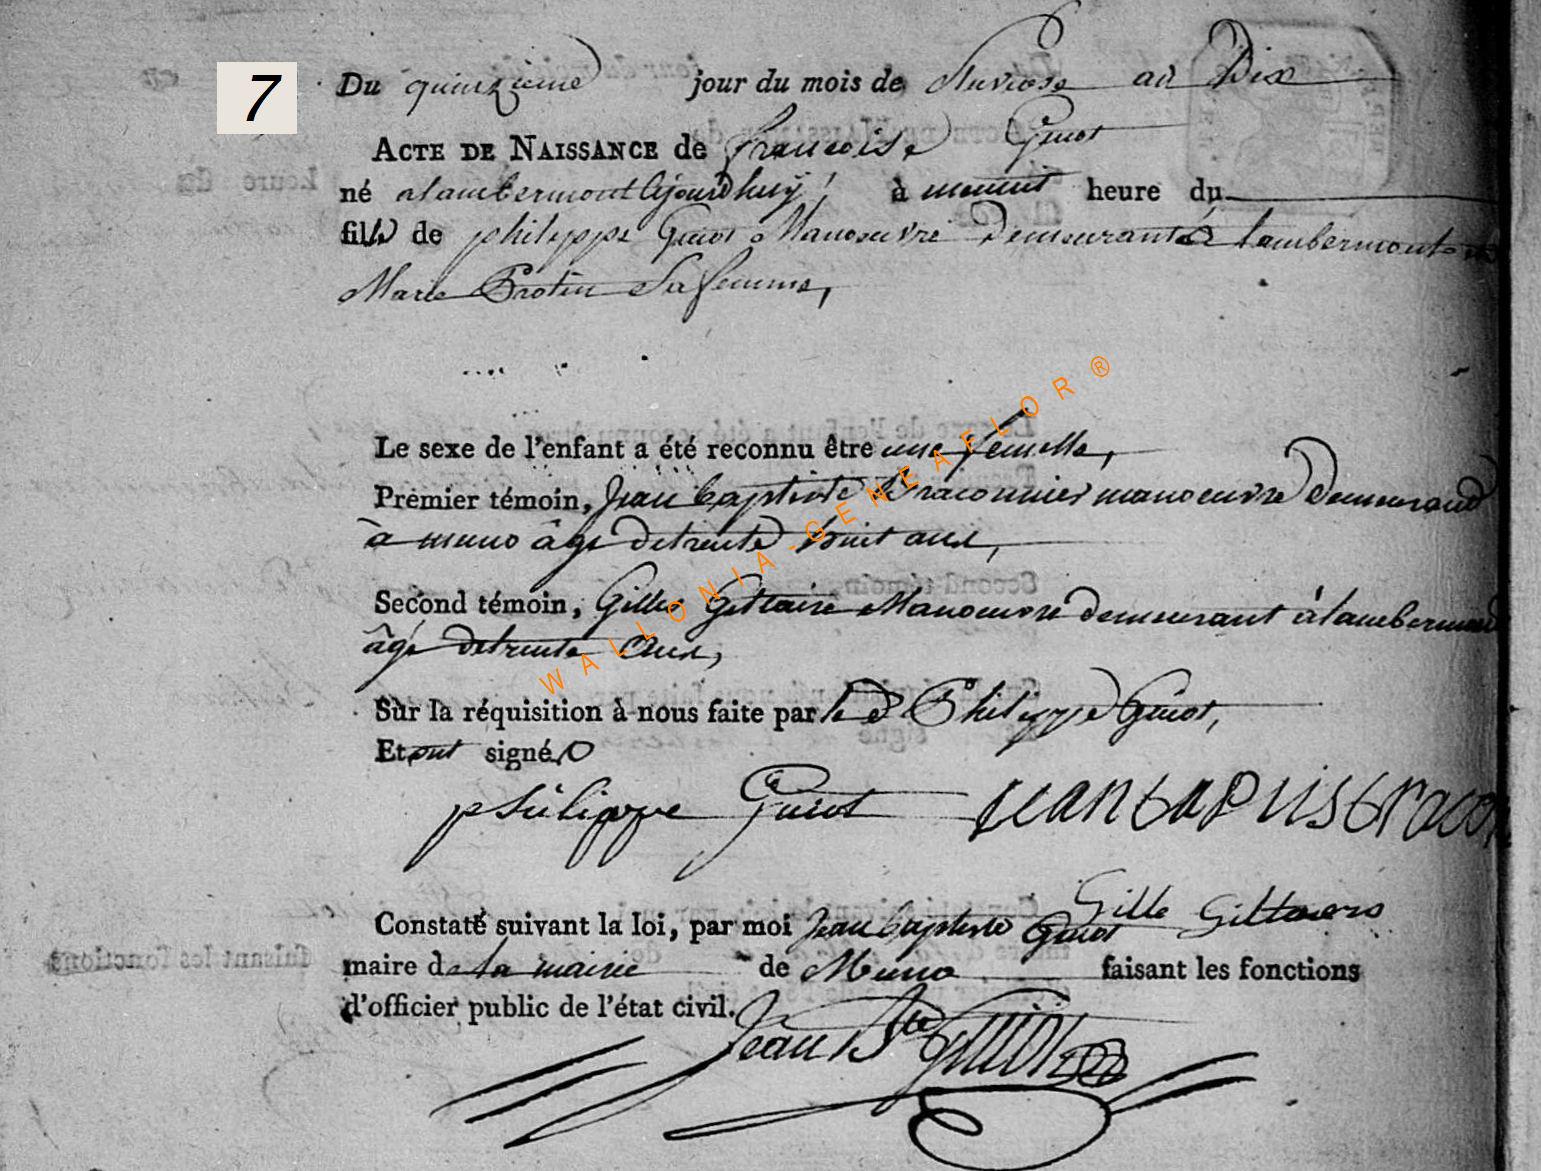 7
Du quinzieme jour du mois de Nivose an Dix
ACTE DE NAISSANCE de françoise Guiot
né a lambermont Cejourdhuy à minuit heure du
fille de philippe Guiot Manoeuvre Demeurant à lambermont et
Marie Protin Sa femme,
Le sexe de l'enfant a été reconnu être une femelle,
Premier témoin, Jean baptiste Braconnier manoeuvre Demeurand
à muno âge detrente huit ans,
Second témoin, Gille Gillaire Manoeuvre demeurant à lambermont
âge detrente ans,
Sur la réquisition à nous faite par le d Philippe Guiot,
Et ont signé
philippe Guiot jean bapiist bracon
Gille Gillaers
Constaté suivant la loi, par moi Jean baptiste Guiot
maire de la mairie de Muno faisant les fonctions
d'officier public de l'état civil.
Jean Bte Guiot
WALLONIA-GENEAFLOR®